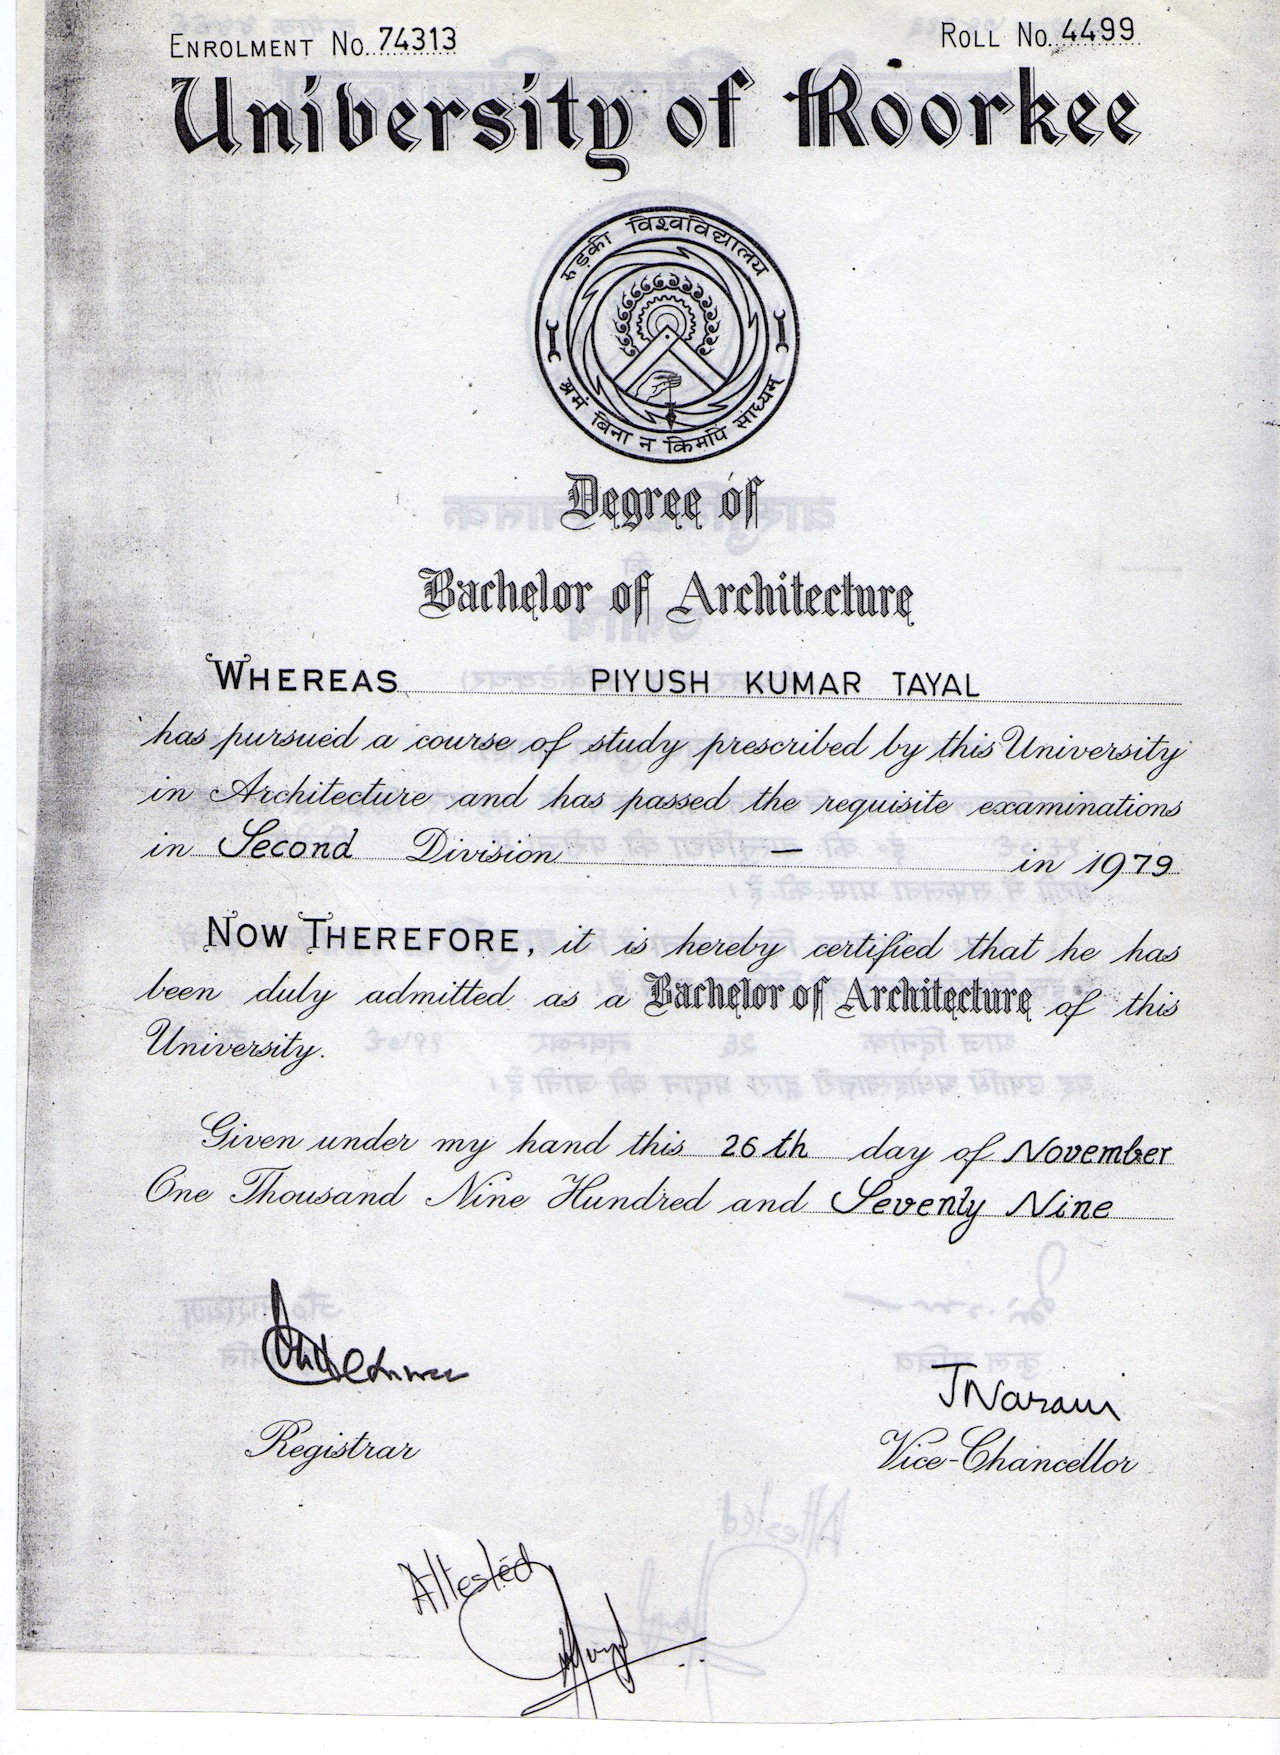 ENROLMENT No. 74313
ROLL No. 4499
University of Roorkee
रुड़की विश्वविद्यालय
श्रमं बिना न किमपि साध्यम्
Degree of
Bachelor of Architecture
WHEREAS PIYUSH KUMAR TAYAL
has pursued a course of study prescribed by this University
in Architecture and has passed the requisite examinations
in Second Division — in 1979
NOW THEREFORE, it is hereby certified that he has
been duly admitted as a Bachelor of Architecture of this
University.
Given under my hand this 26th day of November
One Thousand Nine Hundred and Seventy Nine
JNarain
Registrar
Vice-Chancellor
Attested